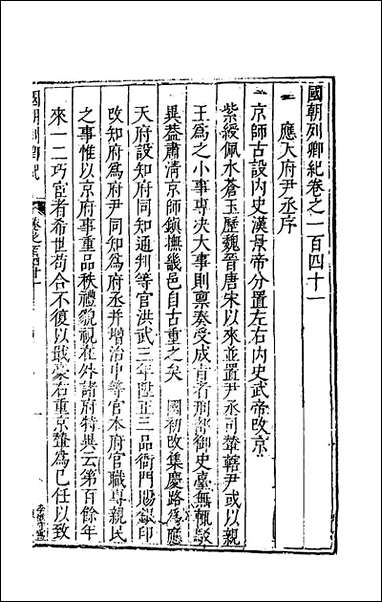 國朝列卿紀卷之一百四十一
應天府尹丞序
京師古設內史漢景帝分置左右內史武帝改京
紫綬佩水蒼玉歷魏晉唐宋以來並置尹丞司輦轄尹或以親
王為之小事專決大事則稟奏受成 者刑部御史臺無輒
異蓋肅清京師鎮撫畿邑自古重之矣 國初改集慶路為應
天府設知府同知通判等官洪武三年陞正三品衙門賜銀印
改知府為府尹同知為府丞并增治中等官本府官職專親民
之事惟以京府事重品秩禮貌視在外諸府特異云第百餘年
來一二巧宦者希世苟合不復以戢豪右重京輦為己任以致
國朝列卿紀